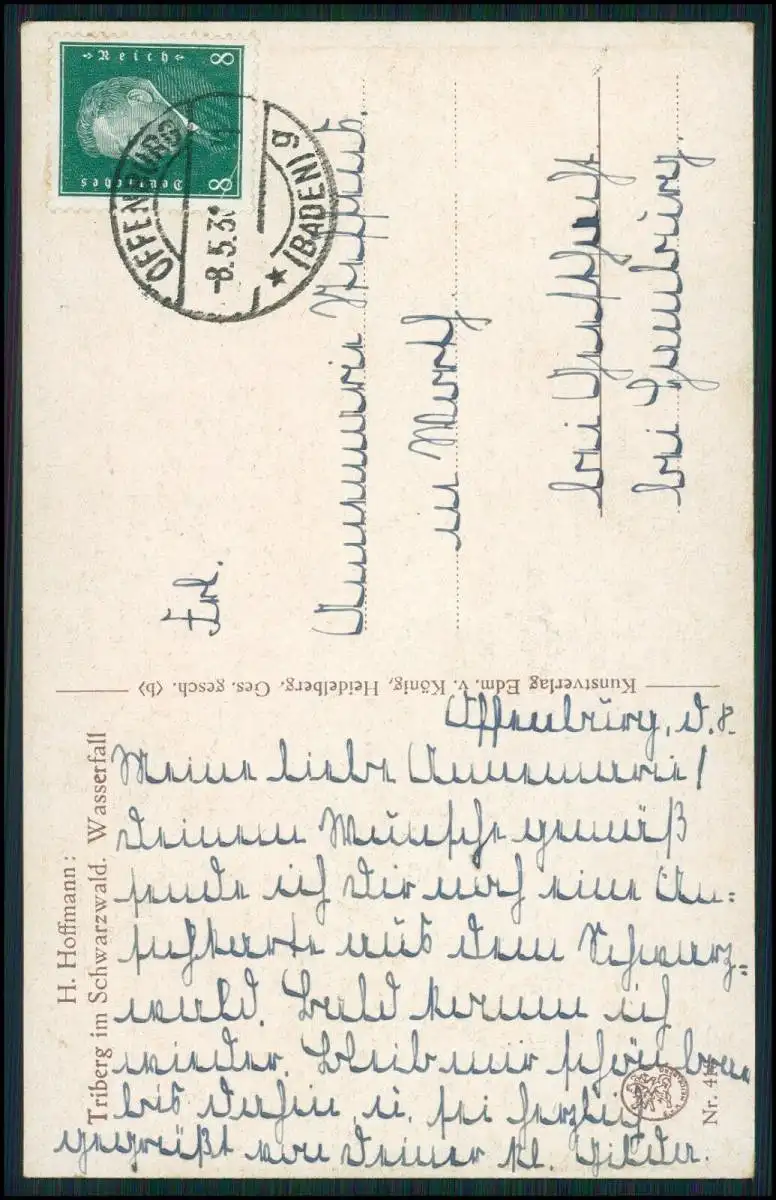 Deutsches Reich
8 8
OFFENBURG (BADEN) g
8.5.3
Frl.
Annemarie
in
bei
bei Hamburg.
Kunstverlag Edm. v. König, Heidelberg. Ges. gesch. (b)
H. Hoffmann:
Triberg im Schwarzwald. Wasserfall
Nr. 4
Offenburg, d. 8.
Meine liebe Annemarie!
Deinem Wunsche gemäß
sende ich Dir noch eine An-
sichtkarte aus dem Schwarz-
wald. Bald komme ich
wieder. Bleib mir schön brav
bis dahin u. sei herzlich
gegrüßt von Deiner kl. Hilde.